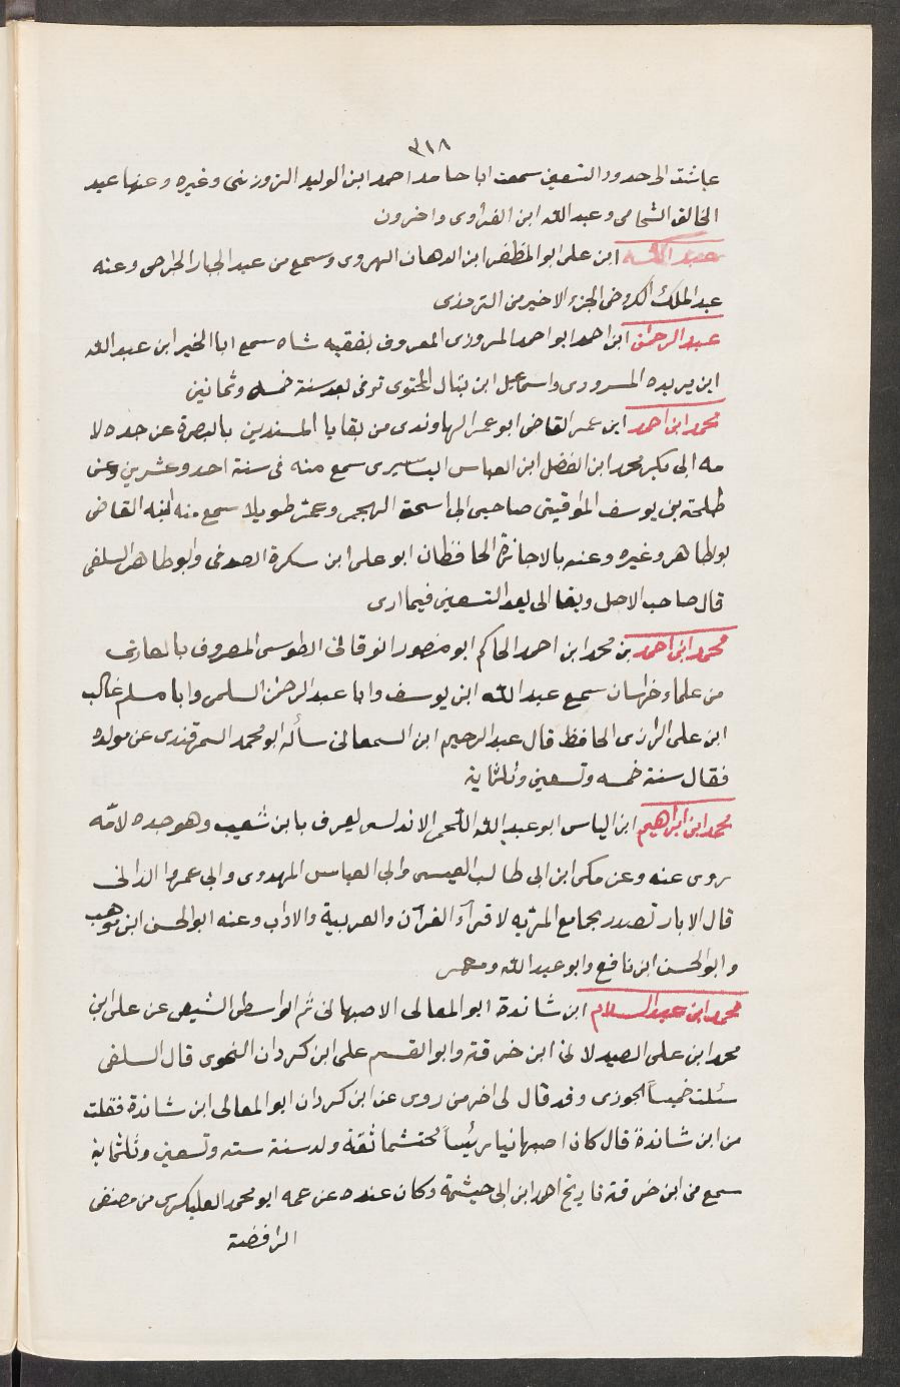 ٣١٨
عاشت الى حدود التسعين سمعت ابا حامد احمد ابن الوليد الزوزنى وغيره وعنها عبد
الخالق الشحامى وعبد الله ابن الفراوى واخرون
ابن على ابو المظفر ابن الدهان الهروى وسمع من عبد الجبار الجراحى وعنه
عبد الملك الكروخى الجزء الاخير من الترمذى
عبد الرحمن ابن احمد ابو احمد المروزى المعروف بفقيه شاه سمع ابا الخير ابن عبد الله
ابن بريده المروزى واسماعيل ابن ينال المحبوى توفى بعد سنة خمسه وثمانين
محمد ابن احمد ابن عمر القاضى ابو عمر النهاوندى من بقايا المسندين بالبصرة عن جده لا
مه ابى بكر محمد ابن الفضل ابن العباس سمع منه فى سنة احد وعشرين وعن
طلحة بن يوسف المواقيتى صاحبى ابى اسحق الهجمى وعمر طويلا سمع منه ابنه القاضى
بوطاهر وغيره وعنه بالاجازة الحافظان ابو على ابن سكرة الصدفى وابو طاهر السلفى
قال صاحب الاصل وبقا الى بعد التسعين فيما ارى
محمد ابن احمد بن محمد ابن احمد الحاكم ابو منصور النوقانى الطوسى المعروف
من علماء خراسان سمع عبد الله ابن يوسف وابا عبد الرحمن السلمى وابا مسلم غالب
ابن على الرازى الحافظ قال عبد الرحيم ابن السمعانى سأله ابو محمد السمرقندى عن مولده
فقال سنة خمسه وتسعين وثلثماية
محمد ابن ابراهيم ابن الياس ابو عبد الله اللخمى الاندلسى يعرف بابن شعيب وهو جده لامّه
روى عنه وعن مكى ابن ابى طالب القيسى وابى العباس المهدوى وابى عمرو الدانى
قال الابار تصدر بجامع المريه لاقراء القرآن والعربية والاداب وعنه ابو الحسن ابن موهب
وابو الحسن ابن نافع وابو عبد الله ومعمر
محمد ابن عبد السلام ابن شاندة ابو المعالى الاصبهانى ثم الواسطى الشيعى عن على ابن
محمد ابن على الصيدلانى ابن خرقة وابو القسم على ابن كردان النحوى قال السلفى
سئلت خميساً الحوزى وقد قال لى اخر من روى عن ابن كردان ابو المعالى ابن شاندة فقلت
من ابن شاندة قال كان اصبهانيا رئيساً محتشما ثقة ولد سنة سته وتسعين وثلثماية
سمع من ابن خرقة تاريخ احمد ابن ابى خيثمة وكان عنده عن عمه ابو محمد العلبكرى من مصنفى
الرافضة